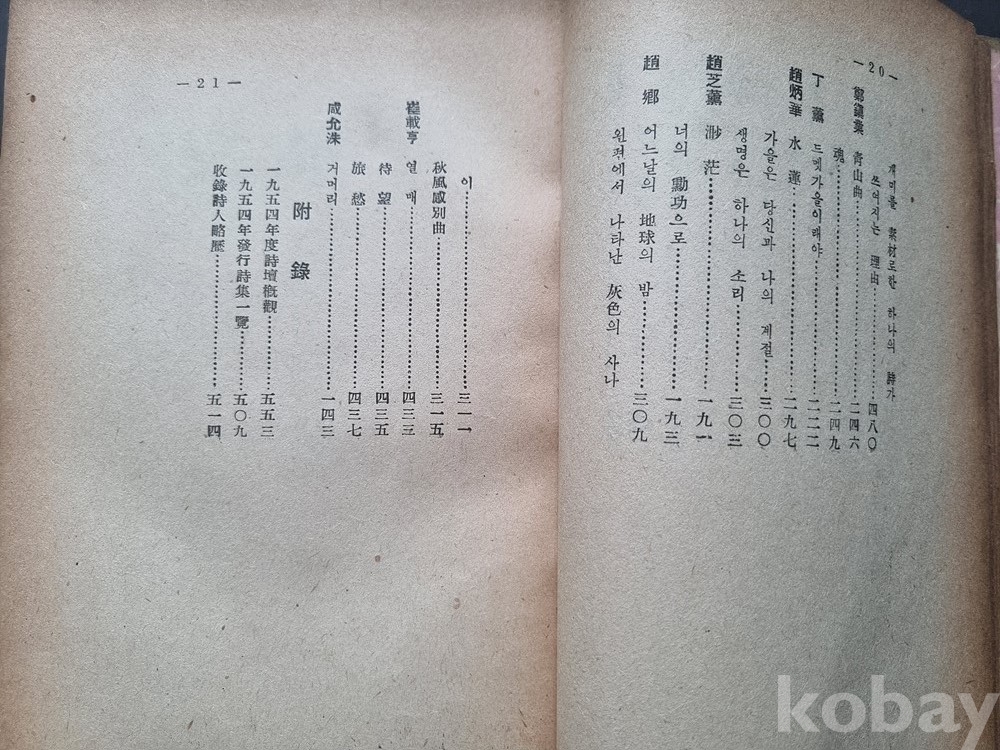 —20—
개미를 素材로한 하나의 詩가
쓰여지는 理由…………四八〇
鄭鎭業 靑山曲…………二四六
魂…………二四九
丁薰 드멧가을이래야…………二二二
趙炳華 水蓮…………二九七
가을은 당신과 나의 계절…………三〇〇
생명은 하나의 소리…………三〇三
趙芝薰 渺茫…………一九一
너의 勳功으로…………一九三
趙鄕 어느날의 地球의 밤…………三〇九
왼편에서 나타난 灰色의 사나
—21—
이…………三一一
秋風感別曲…………三一五
崔載亨 열매…………四三三
待望…………四三五
旅愁…………四三七
咸允洙 거머리…………一四三
附錄
一九五四年度詩壇槪觀…………五五三
一九五四年發行詩集一覽…………五〇九
收錄詩人略歷…………五一四
kobay